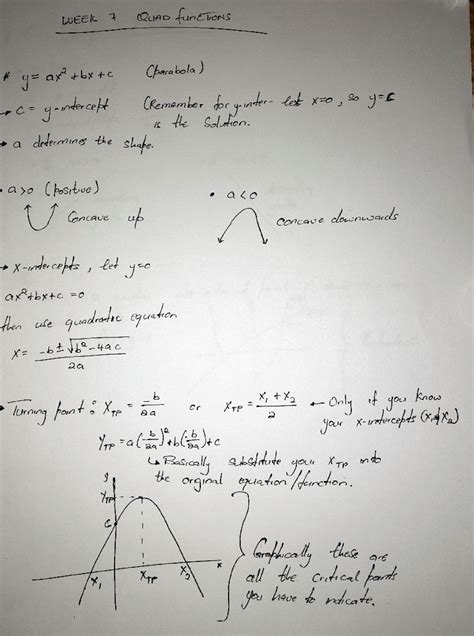 WEEK 7 QUAD FUNCTIONS
* y = ax² + bx + c (parabola)
→ c = y-intercept (Remember for y-inter- let x=0, so y=c
is the Solution.
→ a determines the shape.
• a>0 (positive) • a<0
Concave up Concave downwards
→ x-intercepts, let y=0
ax²+bx+c = 0
then use quadratic equation
x = -b ± √b² - 4ac / 2a
• Turning point : X_TP = -b/2a or X_TP = x₁ + x₂ / 2 ← Only if you know
your x-intercepts (x₁ & x₂)
Y_TP = a(-b/2a)² + b(-b/2a) + c
↳ Basically substitute your X_TP into
the original equation/function.
y
Y_TP
c
x₁ X_TP x₂ x
Graphically these are
all the critical points
you have to indicate.